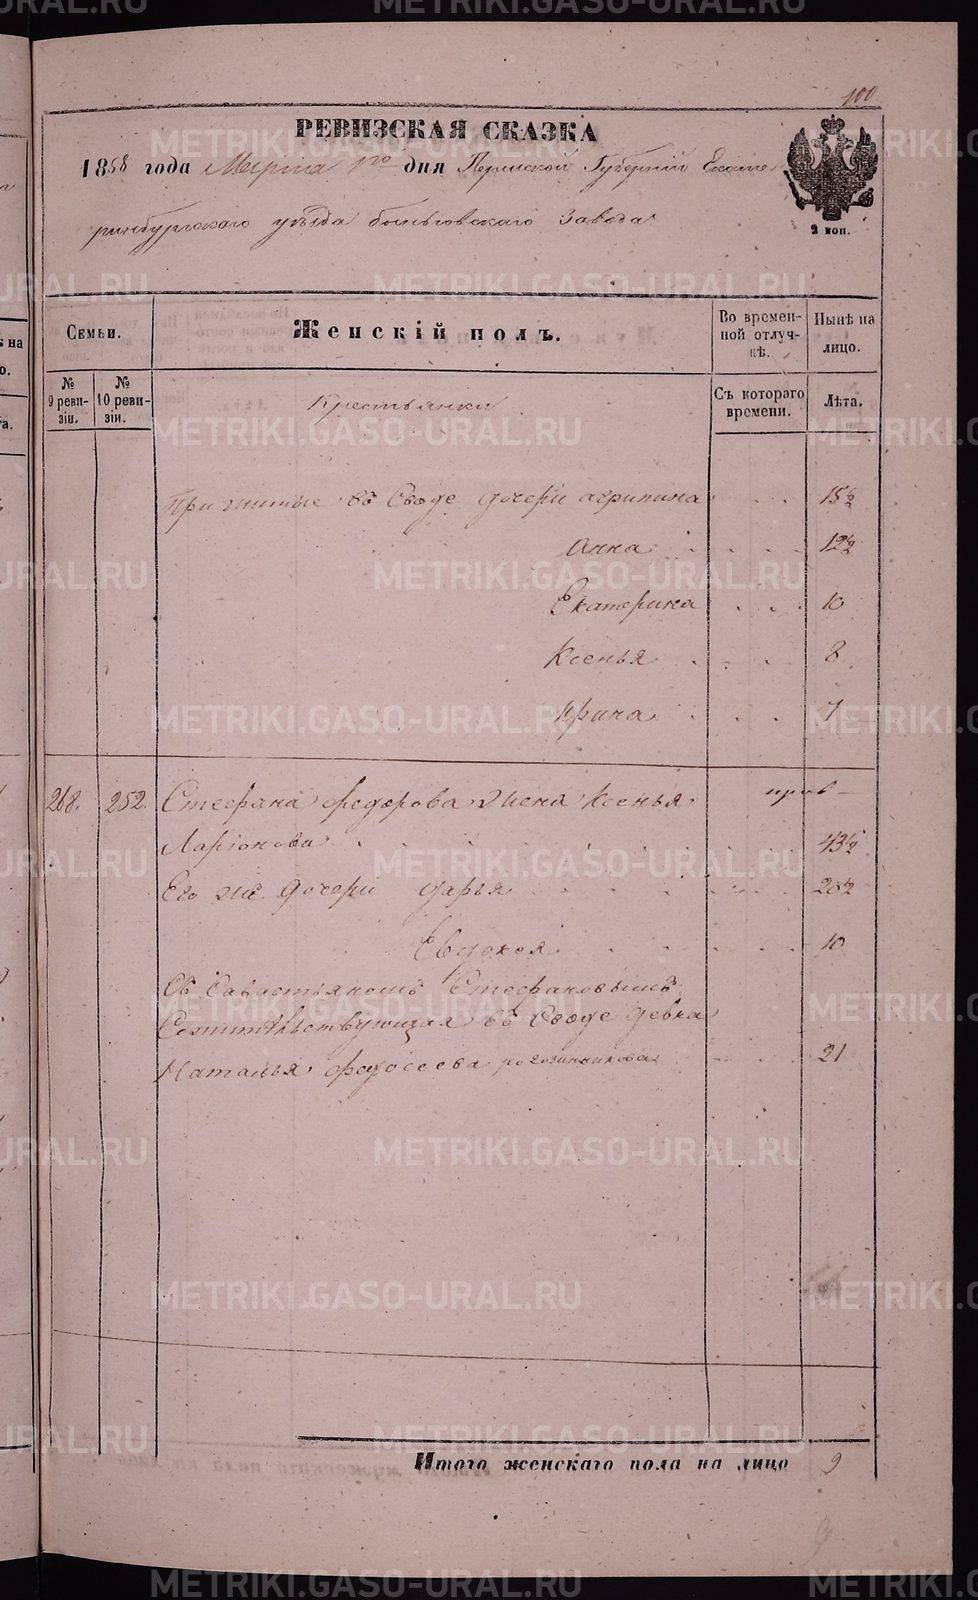 100
РЕВИЗСКАЯ СКАЗКА
1858 года Марта 1го дня Пермской Губернии Екате
ринбургскаго уезда быньговскаго Завода
2 коп.
Семьи.
Женскій полъ.
Во времен-
ной отлуч-
кѣ.
Нынѣ на
лицо.
№
9 реви-
зіи.
№
10 реви-
зіи.
Съ котораго
времени.
Лѣта.
Крестьянки
Прижитые въ Своде дочери агрипина 15½
Анна 12½
Екатерина 10
Ксенья 8
Ирина 7
268. 252. Стефана федорова жена Ксенья
Ларіонова 43½
Его же дочери дарья 20½
Евдокея 10
Съ Савастьяномъ Стефановымъ
Сожительствующая въ Своде девка
Наталья федосеева 21
Итого женскаго пола на лицо 9
METRIKI.GASO-URAL.RU